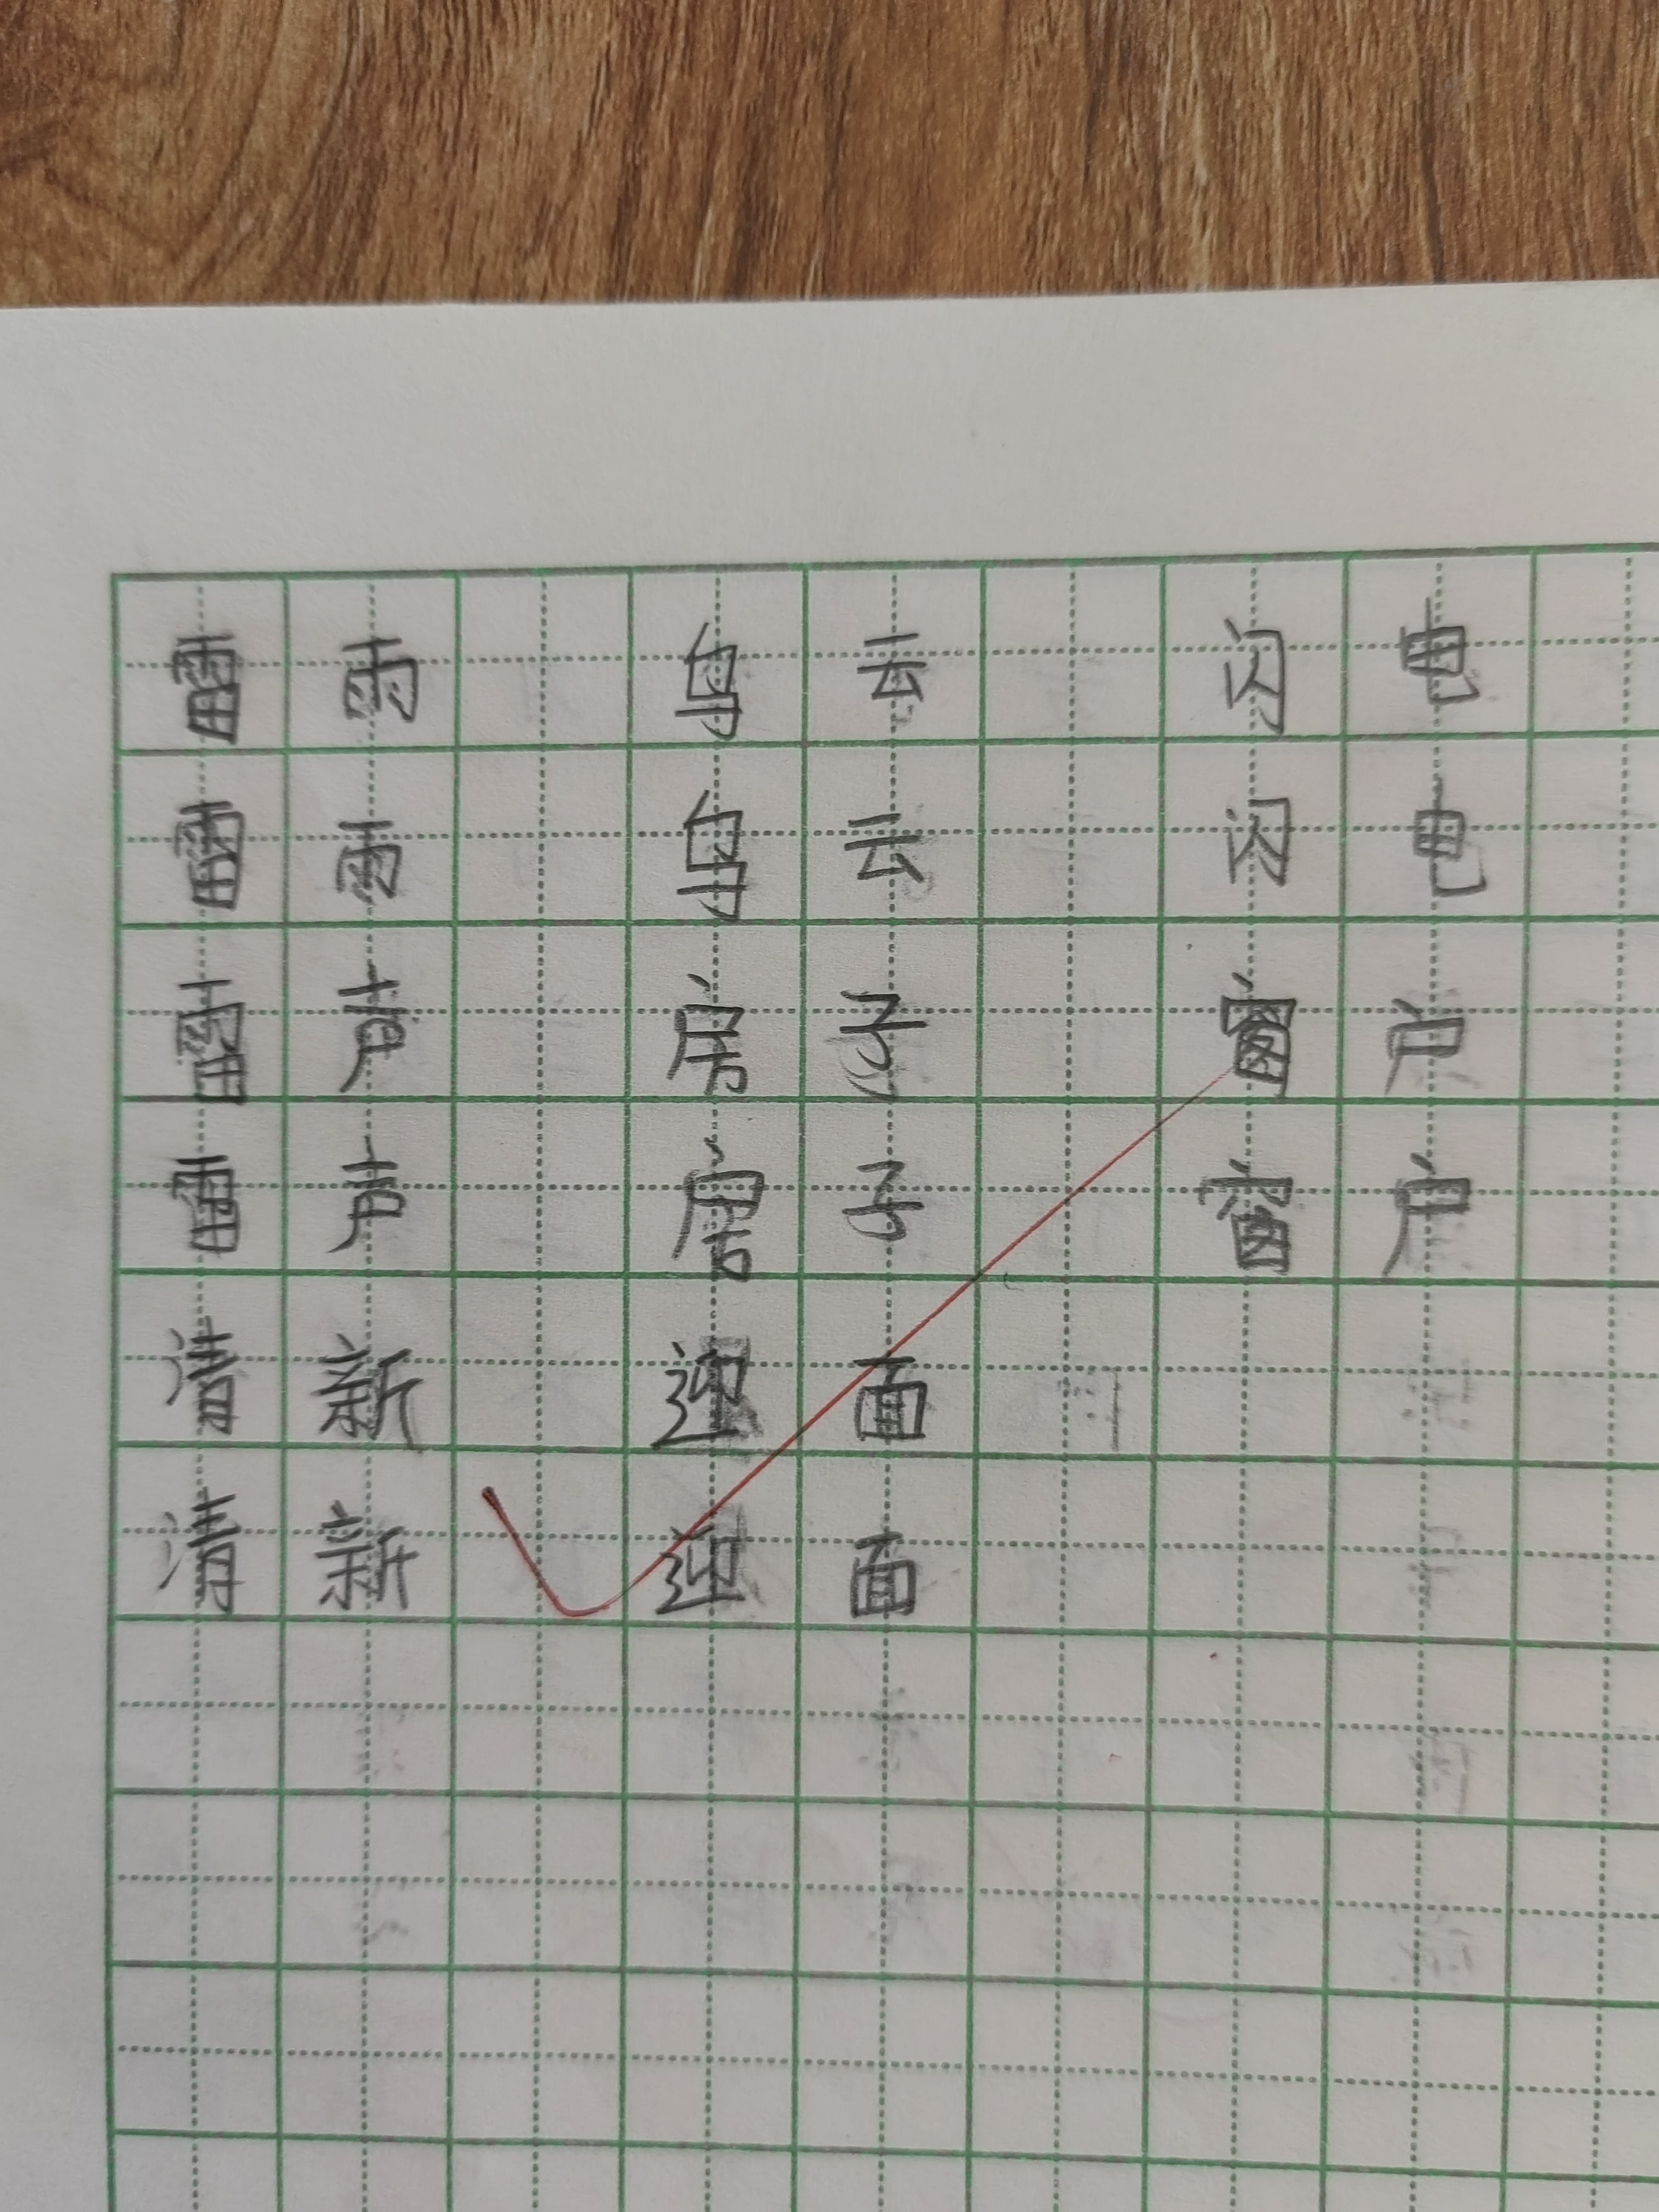 雷雨 乌云 闪电
雷雨 乌云 闪电
雷声 房子 窗户
雷声 房子 窗户
清新 迎面
清新 迎面